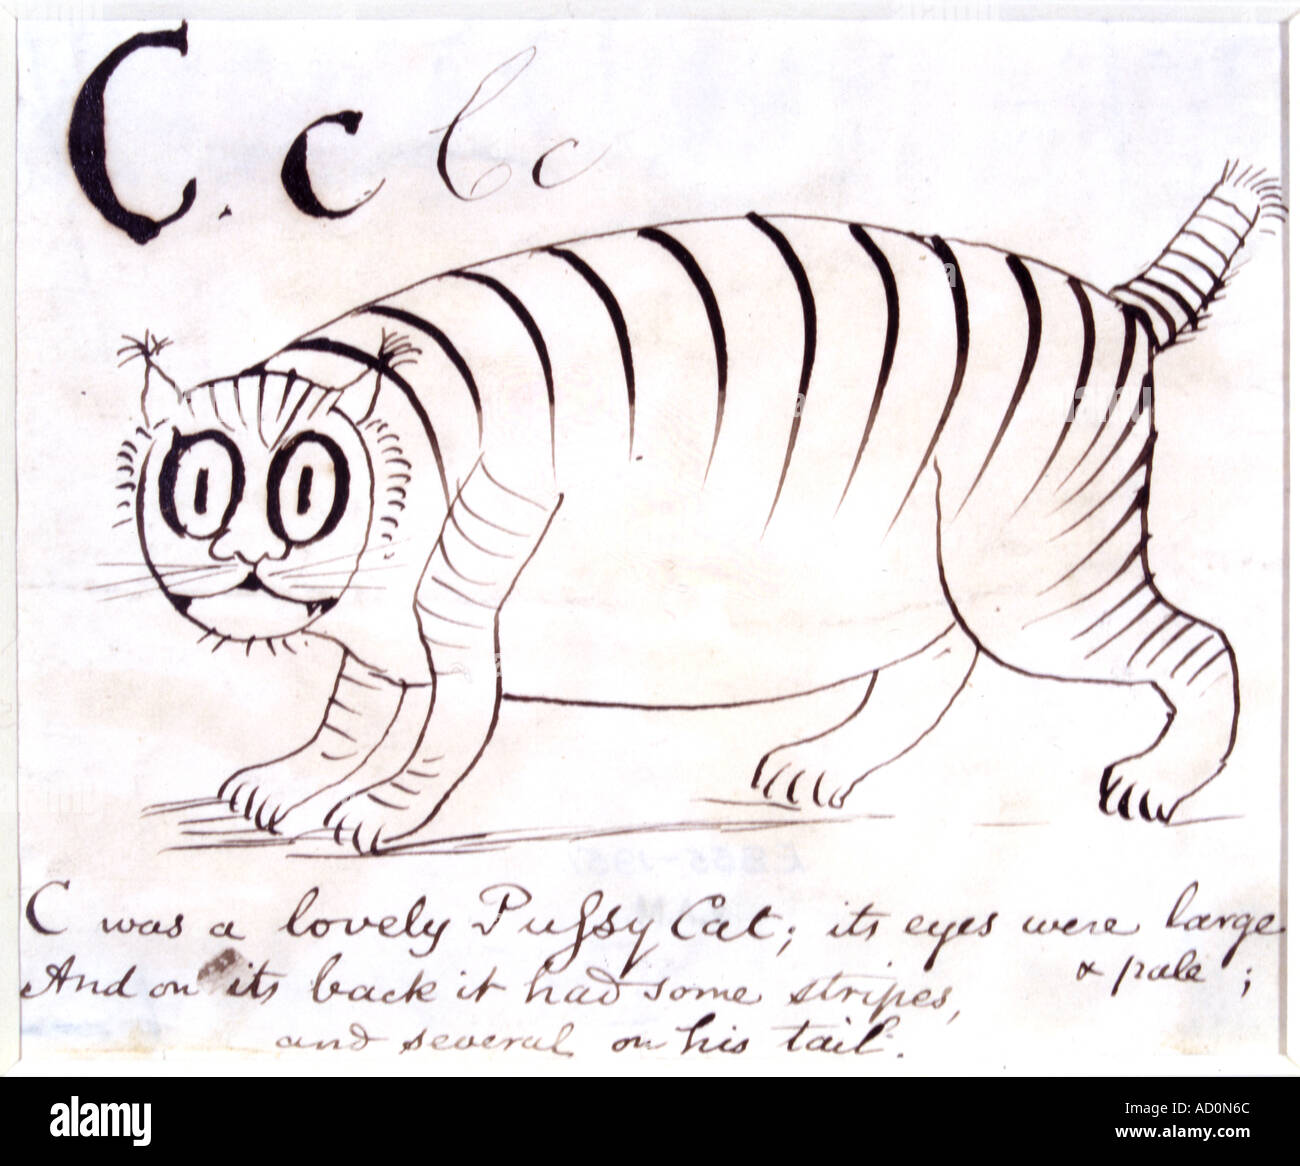 C. c C c
C was a lovely Puſsy Cat; its eyes were large
& pale;
And on its back it had some stripes,
and several on his tail.
alamy
Image ID: AD0N6C
www.alamy.com